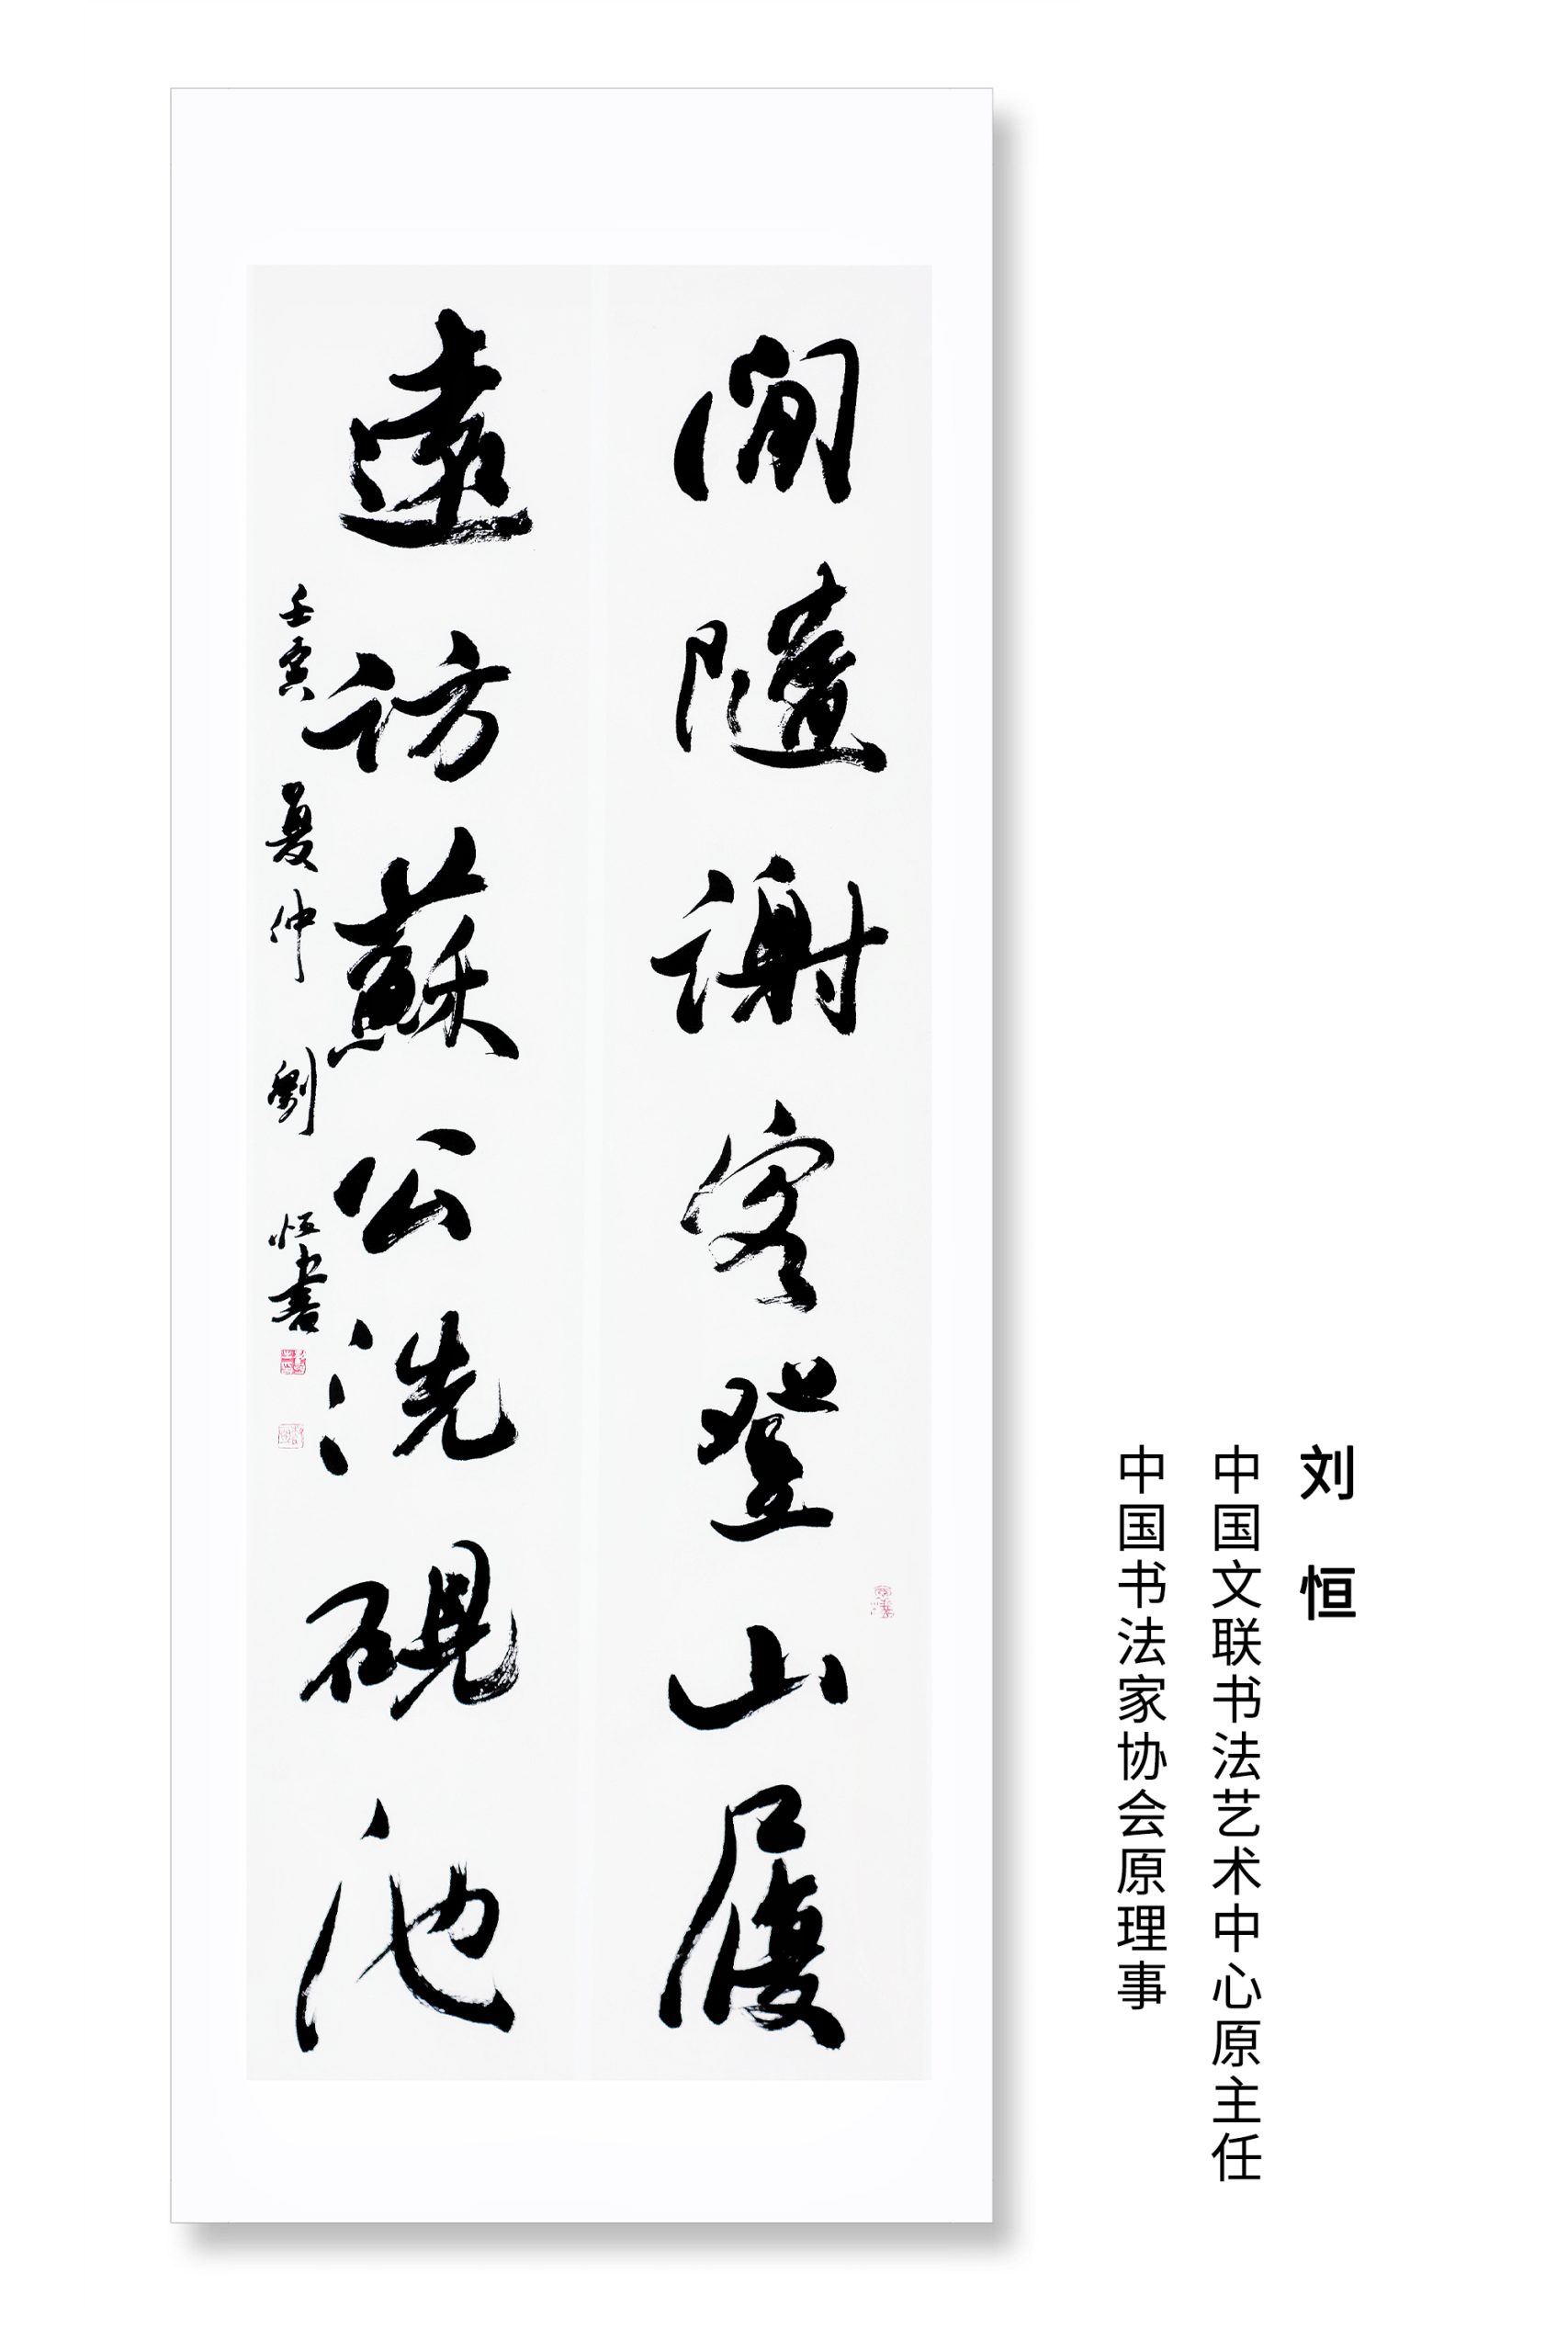 刘恒
中国文联书法艺术中心原主任
中国书法家协会原理事
閒隨謝客登山屐
遠訪蘇公洗硯池
壬寅夏仲 劉恒書